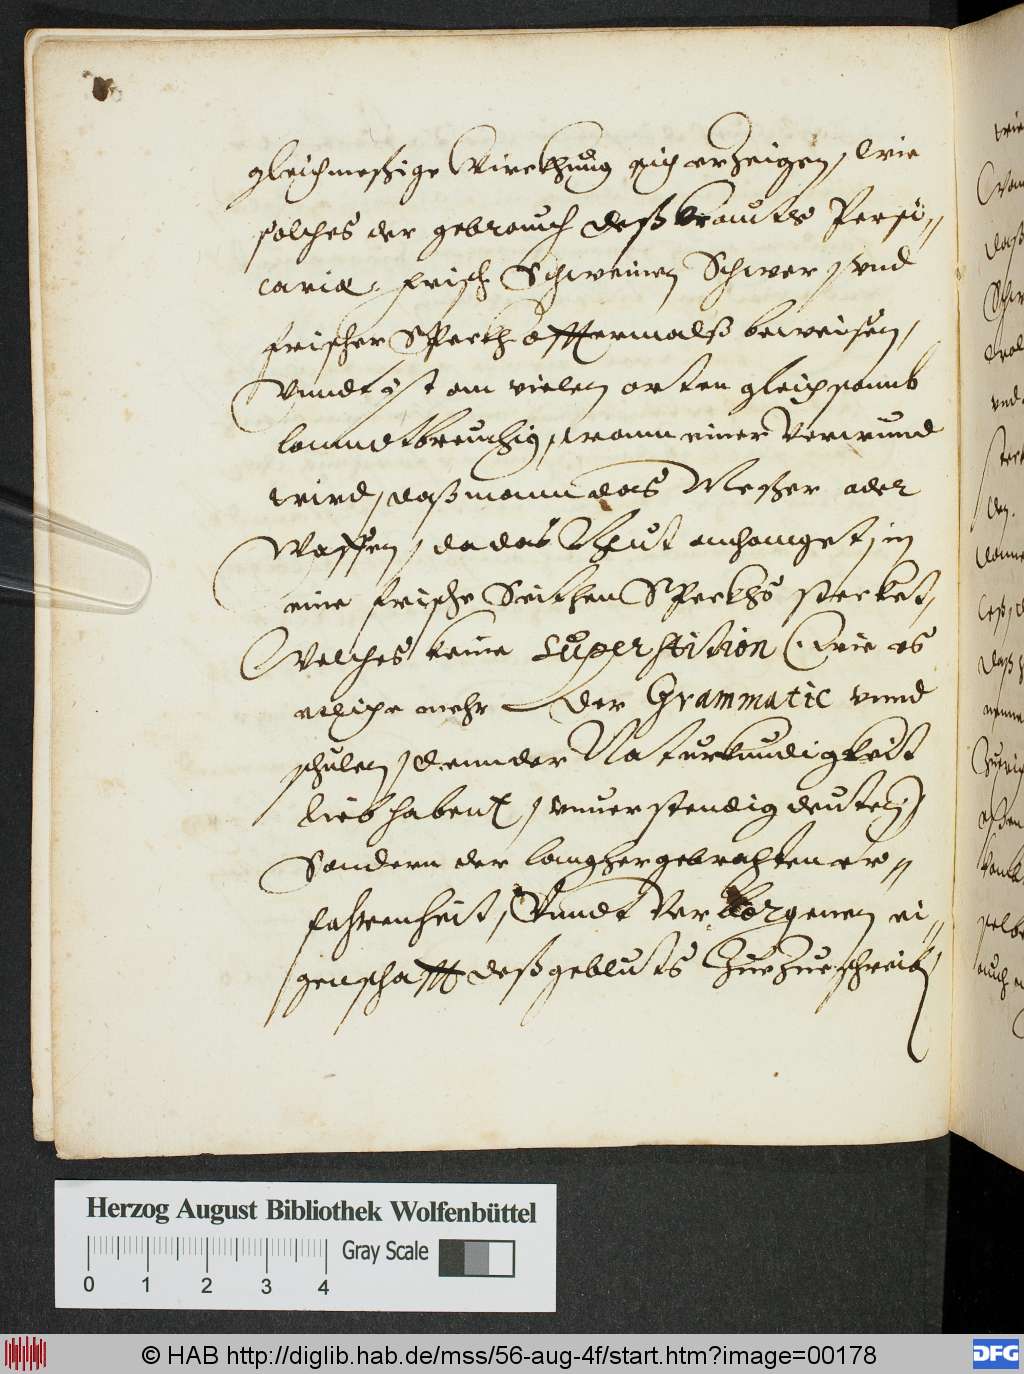 gleichmeßige Wirckhung sich erzeigen, Wie
solches der gebrauch deß krauts Persi-
cariæ, frisch Schweinen Schwer, vnd
frischer Speckh offtermalß beweisen,
Vnndt ist an vielen orten gleichsamb
lanndtbreuchig, wann einer Verwund
wird, daß mann das Meßer oder
Waffen, da das Bluet anhanget, in
eine frische Seithen Speckhs stecket,
Welches keine Superstition (Wie es
etliche mehr der Grammatic vnnd
schulen, denn der Naturkundigkeit
liebhabent, vnuerstendig deuten)
Sondern der langhergebrachten er-
fahrenheit, Vnndt Verborgenen ei-
genschafft deß gebluts Zue Zueschreiben
Herzog August Bibliothek Wolfenbüttel
0 1 2 3 4 Gray Scale
© HAB http://diglib.hab.de/mss/56-aug-4f/start.htm?image=00178
DFG